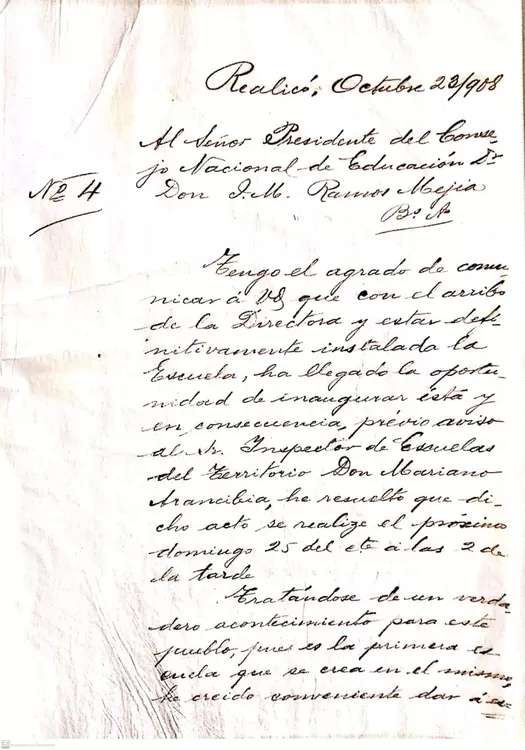 Realicó, Octubre 23/908
Al Señor Presidente del Conse-
jo Nacional de Educacion Dr
Nº 4
Don J. M. Ramos Mejia
Bs As
Tengo el agrado de comu-
nicar á VS, que con el arribo
de la Directora y estar defi-
nitivamente instalada la
Escuela, ha llegado la oportu-
nidad de inaugurar ésta y
en consecuencia, prévio aviso
al Sr. Inspector de Escuelas
del Territorio Don Mariano
Arancibia, he resuelto que di-
cho acto se realize el próximo
domingo 25 del cte á las 2 de
la tarde
Tratándose de un verda-
dero acontecimiento para este
pueblo, pues es la primera es
cuela que se crea en el mismo,
he creido conveniente dar á es-